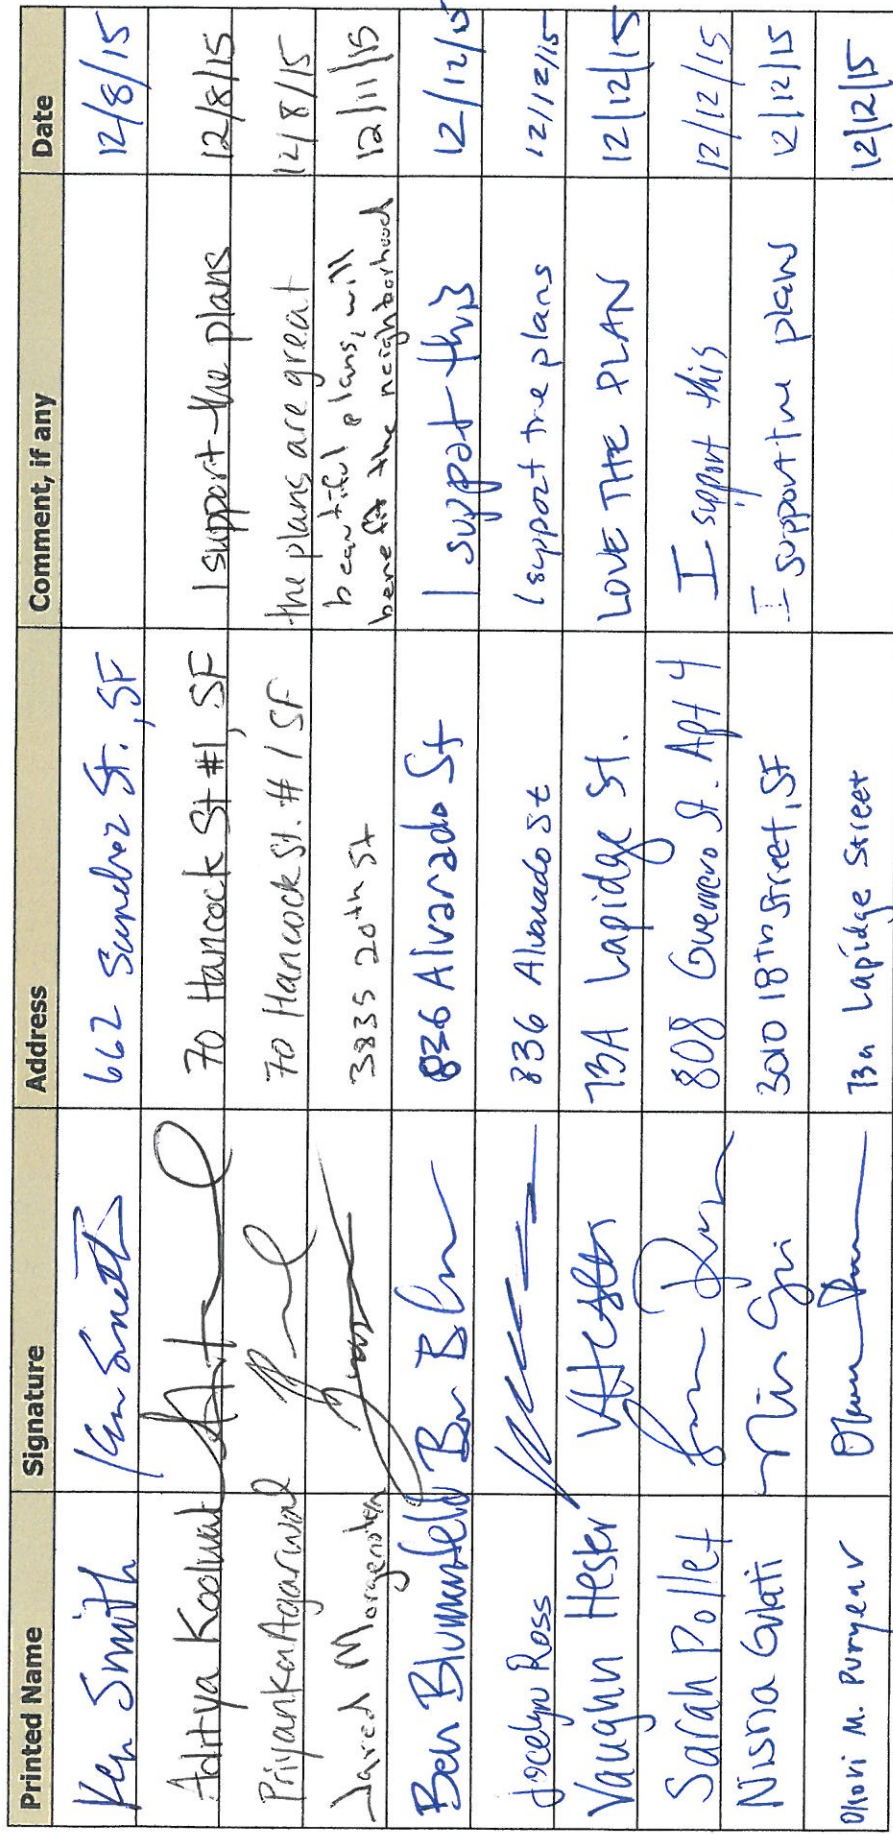 Printed Name Signature Address Comment, if any Date
Ken Smith Ken Smith 662 Sanchez St., SF 12/8/15
Aditya Koolwal 70 Hancock St #1, SF I support the plans 12/8/15
Priyanka Agarwal 70 Hancock St. #1 SF the plans are great 12/8/15
Jared Morgenstern 3835 20th St beautiful plans, will
benefit the neighborhood 12/11/15
Ben Blumenfeld Ben Blu 836 Alvarado St I support this 12/12/15
Jocelyn Ross 836 Alvarado St I support the plans 12/12/15
Vaughn Hester VHester 73A Lapidge St. LOVE THE PLAN 12/12/15
Sarah Pollet 808 Guerrero St. Apt 4 I support this 12/12/15
Nisha Gulati 3010 18th Street, SF I support the plans 12/12/15
M. Puryear 73a Lapidge Street 12/12/15